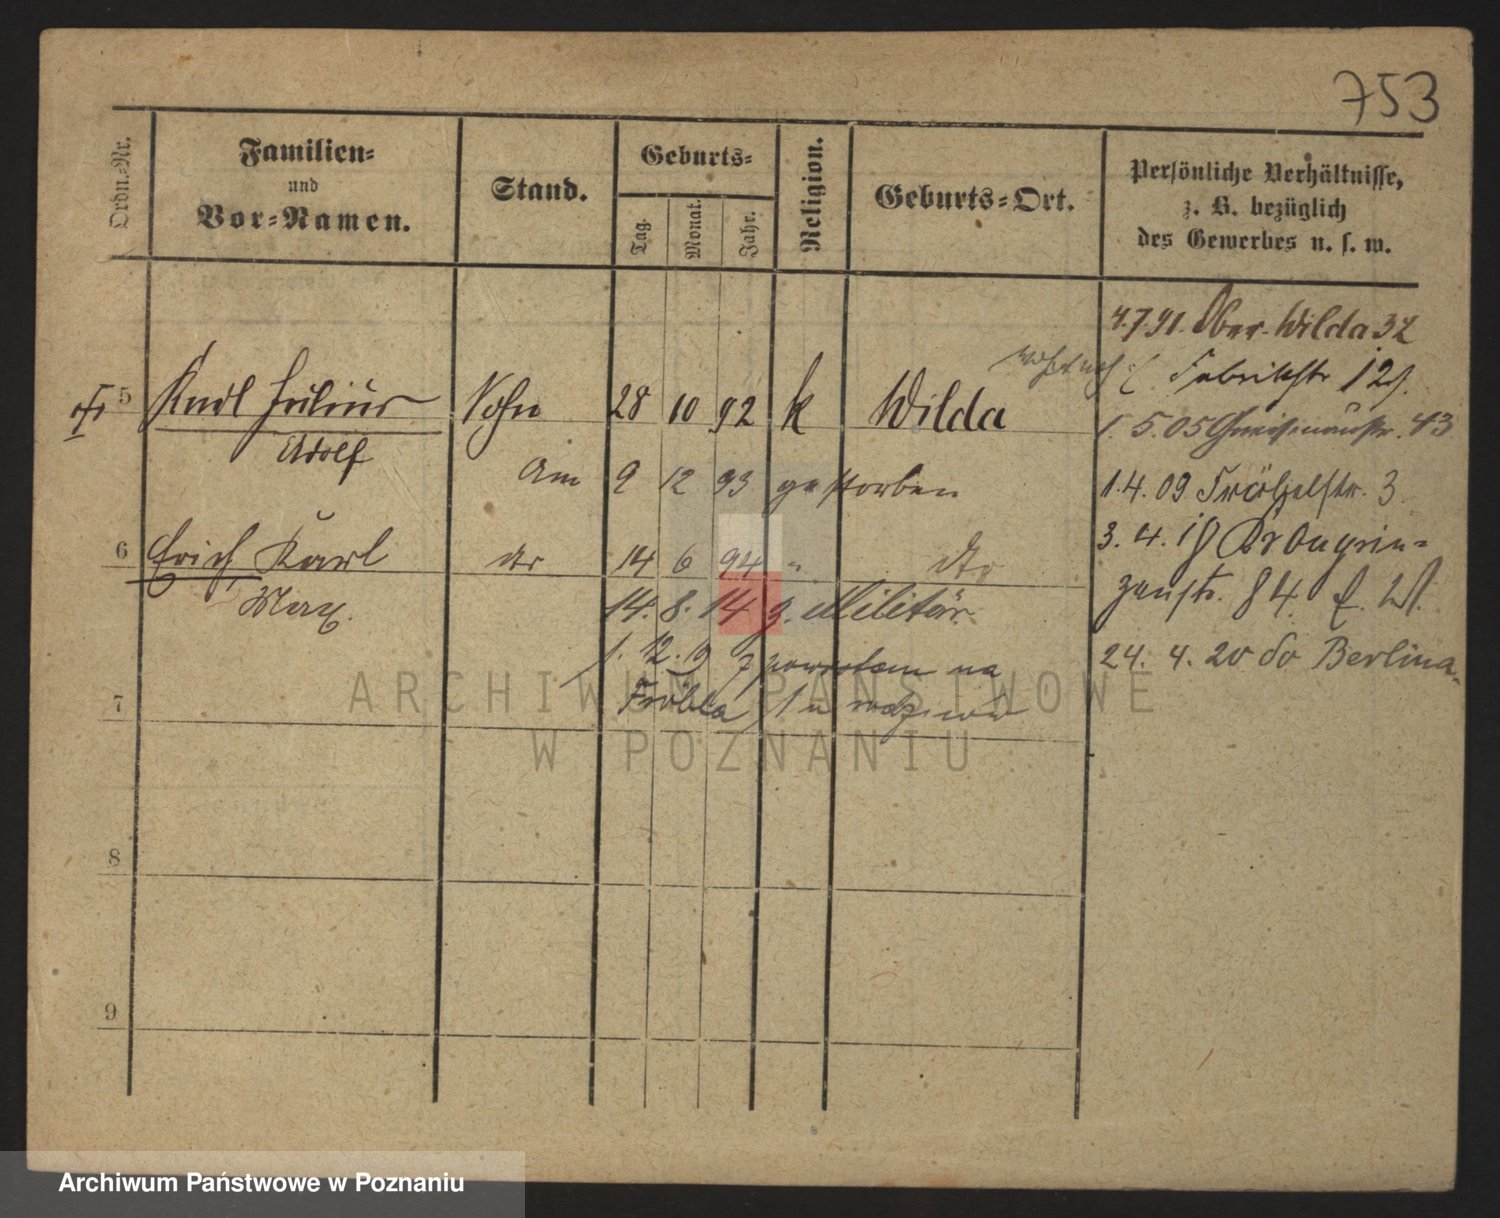 753
Ordn.-Nr.
Familien-
und
Vor-Namen.
Stand.
Geburts-
Tag.
Monat.
Jahr.
Religion.
Geburts-Ort.
Persönliche Verhältnisse,
z. B. bezüglich
des Gewerbes u. s. w.
4.7.91. Ober-Wilda 32
Fabrikstr 12
5 Karl Julius Sohn 28 10 92 k Wilda
Adolf
1.5.05 Gneisenaustr. 43
Am 9 12 93 gestorben
1.4.09 Fröbelstr. 3
6 Erich Karl dto 14 6 94 " dto
Max.
3.4.19 Kronprin-
zenstr. 84
14. 8. 14 z. Militär
1. 12. 19 powrotem na
Fröbla
24. 4. 20 do Berlina
7
8
9
ARCHIWUM PAŃSTWOWE
W POZNANIU
Archiwum Państwowe w Poznaniu